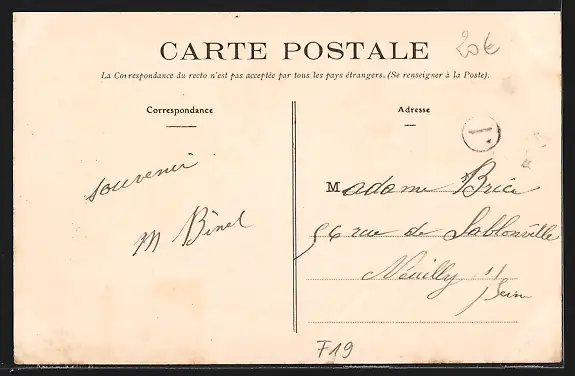 CARTE POSTALE
20€
La Correspondance du recto n'est pas acceptée par tous les pays étrangers. (Se renseigner à la Poste).
Correspondance
souvenir
M Binel
Adresse
1
Madame Brice
56 rue de Sablonville
Neuilly s/
Seine
F19